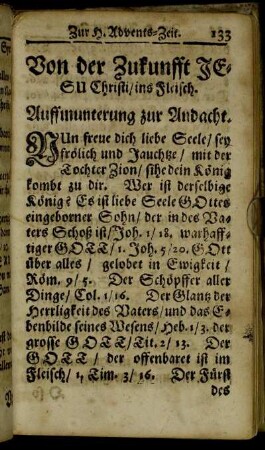 Zur H. Advents-Zeit. 133
Von der Zukunfft JE-
SU Christi/ins Fleisch.
Auffmunterung zur Andacht.
NUn freue dich liebe Seele/sey
frölich und Jauchtze/ mit der
Tochter Zion/ sihe dein König
kombt zu dir. Wer ist derselbige
König? Es ist liebe Seele GOttes
eingeborner Sohn/ der in des Va-
ters Schoß ist/Joh. 1/ 18. warhaff-
tiger GOTT/1. Joh. 5/20. GOtt
über alles/ gelobet in Ewigkeit/
Röm. 9/ 5. Der Schöpffer aller
Dinge/ Col. 1/16. Der Glantz der
Herrligkeit des Vaters/und das E-
benbilde seines Wesens/Heb. 1/3. der
grosse GOTT/Tit. 2/ 13. Der
GOTT/ der offenbaret ist im
Fleisch/ 1. Tim. 3/ 16. Der Fürst
des